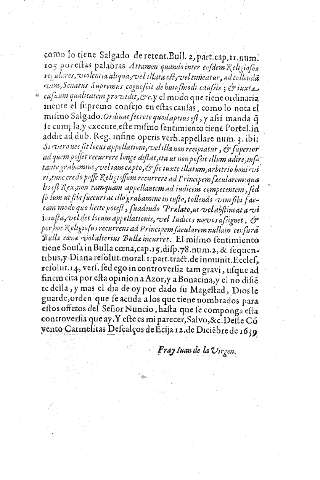 como lo tiene Salgado de retent. Bull. 2, part. cap. 11. num.
105 por estas palabras Attamen quando inter eosdem Religiosos
regulares, violentia aliqua, vel illata est, vel timeatur, ad tollendã
eam, Senatus supremus cognoscit de huiusmodi causis; & iuxta
causæ qualitatem providit, &c. y el modo que tiene ordinaria
mente el supremo consejo en estas causas, como lo nota el
mismo Salgado. Ordinat secrete quod aptius est, y assi manda q̃
se cumpla, y execute, este mismo sentimiento tiene Portel. in
addit. ad dub. Reg. in fine operis verb. appellare num. 3. ibi:
Si vero non sit locus appellationi, vel illa non recipiatur, & superior
ad quem posset recurrere longe distat, ita ut non possit illum adire, ins-
tante gravamine, vel iam capto, & sic iuxte illatum, arbitrio boni vi
ri, tunc credo posse Religiosum recurrere ad Principem sæcularem qua
lis est Rex, non tamquam appellantem ad iudicem competentem, sed
solum ut sibi succurrat illo gravamini in iusto, tollendo vim sibi fac-
tam modo quo licite potest, suadendo Prælato, ut vel abstineat a vi
iniusta, vel det locum appellationis, vel Iudices novos assignet, &
por hoc Religiosus recurrens ad Principem sæcularem nullam censurã
Bullæ cænæ vel alterius Bullæ incurret. El mismo sentimiento
tiene Sousa in Bulla cœna, cap. 15. disp. 78. num. 2, & sequen-
tibus, y Diana resolut. moral. 1. part. tract. de inmunit. Eccles,
resolut. 14, vers. sed ego in controversia tam gravi, usque ad
finem cita por esta opinion a Azor, y a Bonacina, y el no disiẽ
te della, y mas el dia de oy por dado su Magestad, Dios le
guarde, orden que se acuda a los que tiene nombrados para
estos oficios del Señor Nuncio, hasta que se componga esta
controversia que ay. Y este es mi parecer, Salvo, &c. Deste Cõ
vento Carmelitas Descalços de Ecija 12. de Diciẽbre de 1639
Fray Iuan de la Virgen.